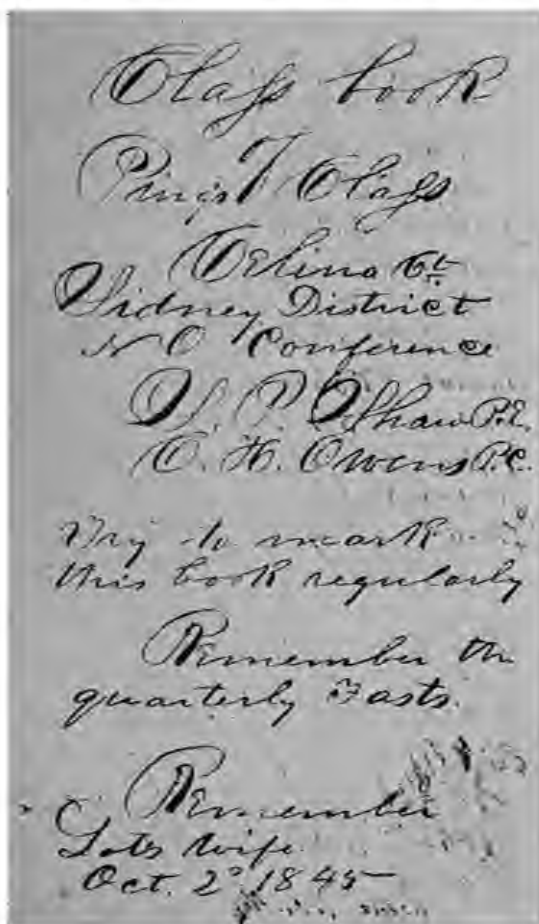 Class book
Ping's Class
Celina Ct
Sidney District
N O Conference
P. Shaw P.E.
C. H. Owens P.C.
Try to mark
this book regularly
Remember the
quarterly Fasts.
Remember
Lots wife
Oct. 2 1845